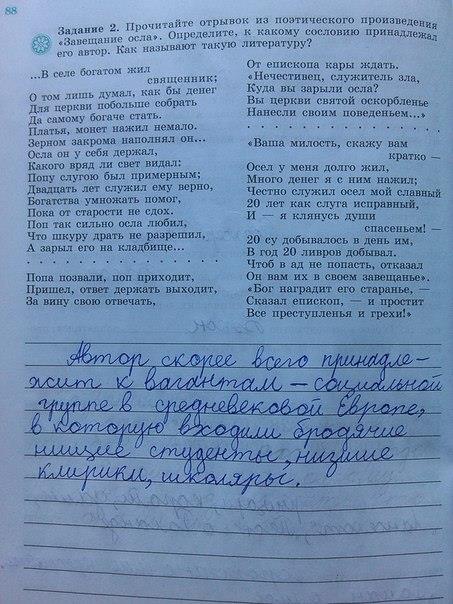 88
Задание 2. Прочитайте отрывок из поэтического произведения
«Завещание осла». Определите, к какому сословию принадлежал
его автор. Как называют такую литературу?
...В селе богатом жил
священник;
О том лишь думал, как бы денег
Для церкви побольше собрать
Да самому богаче стать.
Платья, монет нажил немало.
Зерном закрома наполнял он...
Осла он у себя держал,
Какого вряд ли свет видал:
Попу слугою был примерным;
Двадцать лет служил ему верно,
Богатства умножать помог,
Пока от старости не сдох.
Поп так сильно осла любил,
Что шкуру драть не разрешил,
А зарыл его на кладбище...
Попа позвали, поп приходит,
Пришел, ответ держать выходит,
За вину свою отвечать,
От епископа кары ждать.
«Нечестивец, служитель зла,
Куда вы зарыли осла?
Вы церкви святой оскорбленье
Нанесли своим поведеньем...»
«Ваша милость, скажу вам
кратко —
Осел у меня долго жил,
Много денег я с ним нажил;
Честно служил осел мой славный
20 лет как слуга исправный,
И — я клянусь души
спасеньем! —
20 су добывалось в день им,
В год 20 ливров добывал.
Чтоб в ад не попасть, отказал
Он вам их в своем завещанье».
«Бог наградит его старанье, —
Сказал епископ, — и простит
Все преступленья и грехи!»
Автор скорее всего принадле-
жит к вагантам – социальной
группе в средневековой Европе,
в которую входили бродячие
нищие студенты, низшие
клирики, школяры.